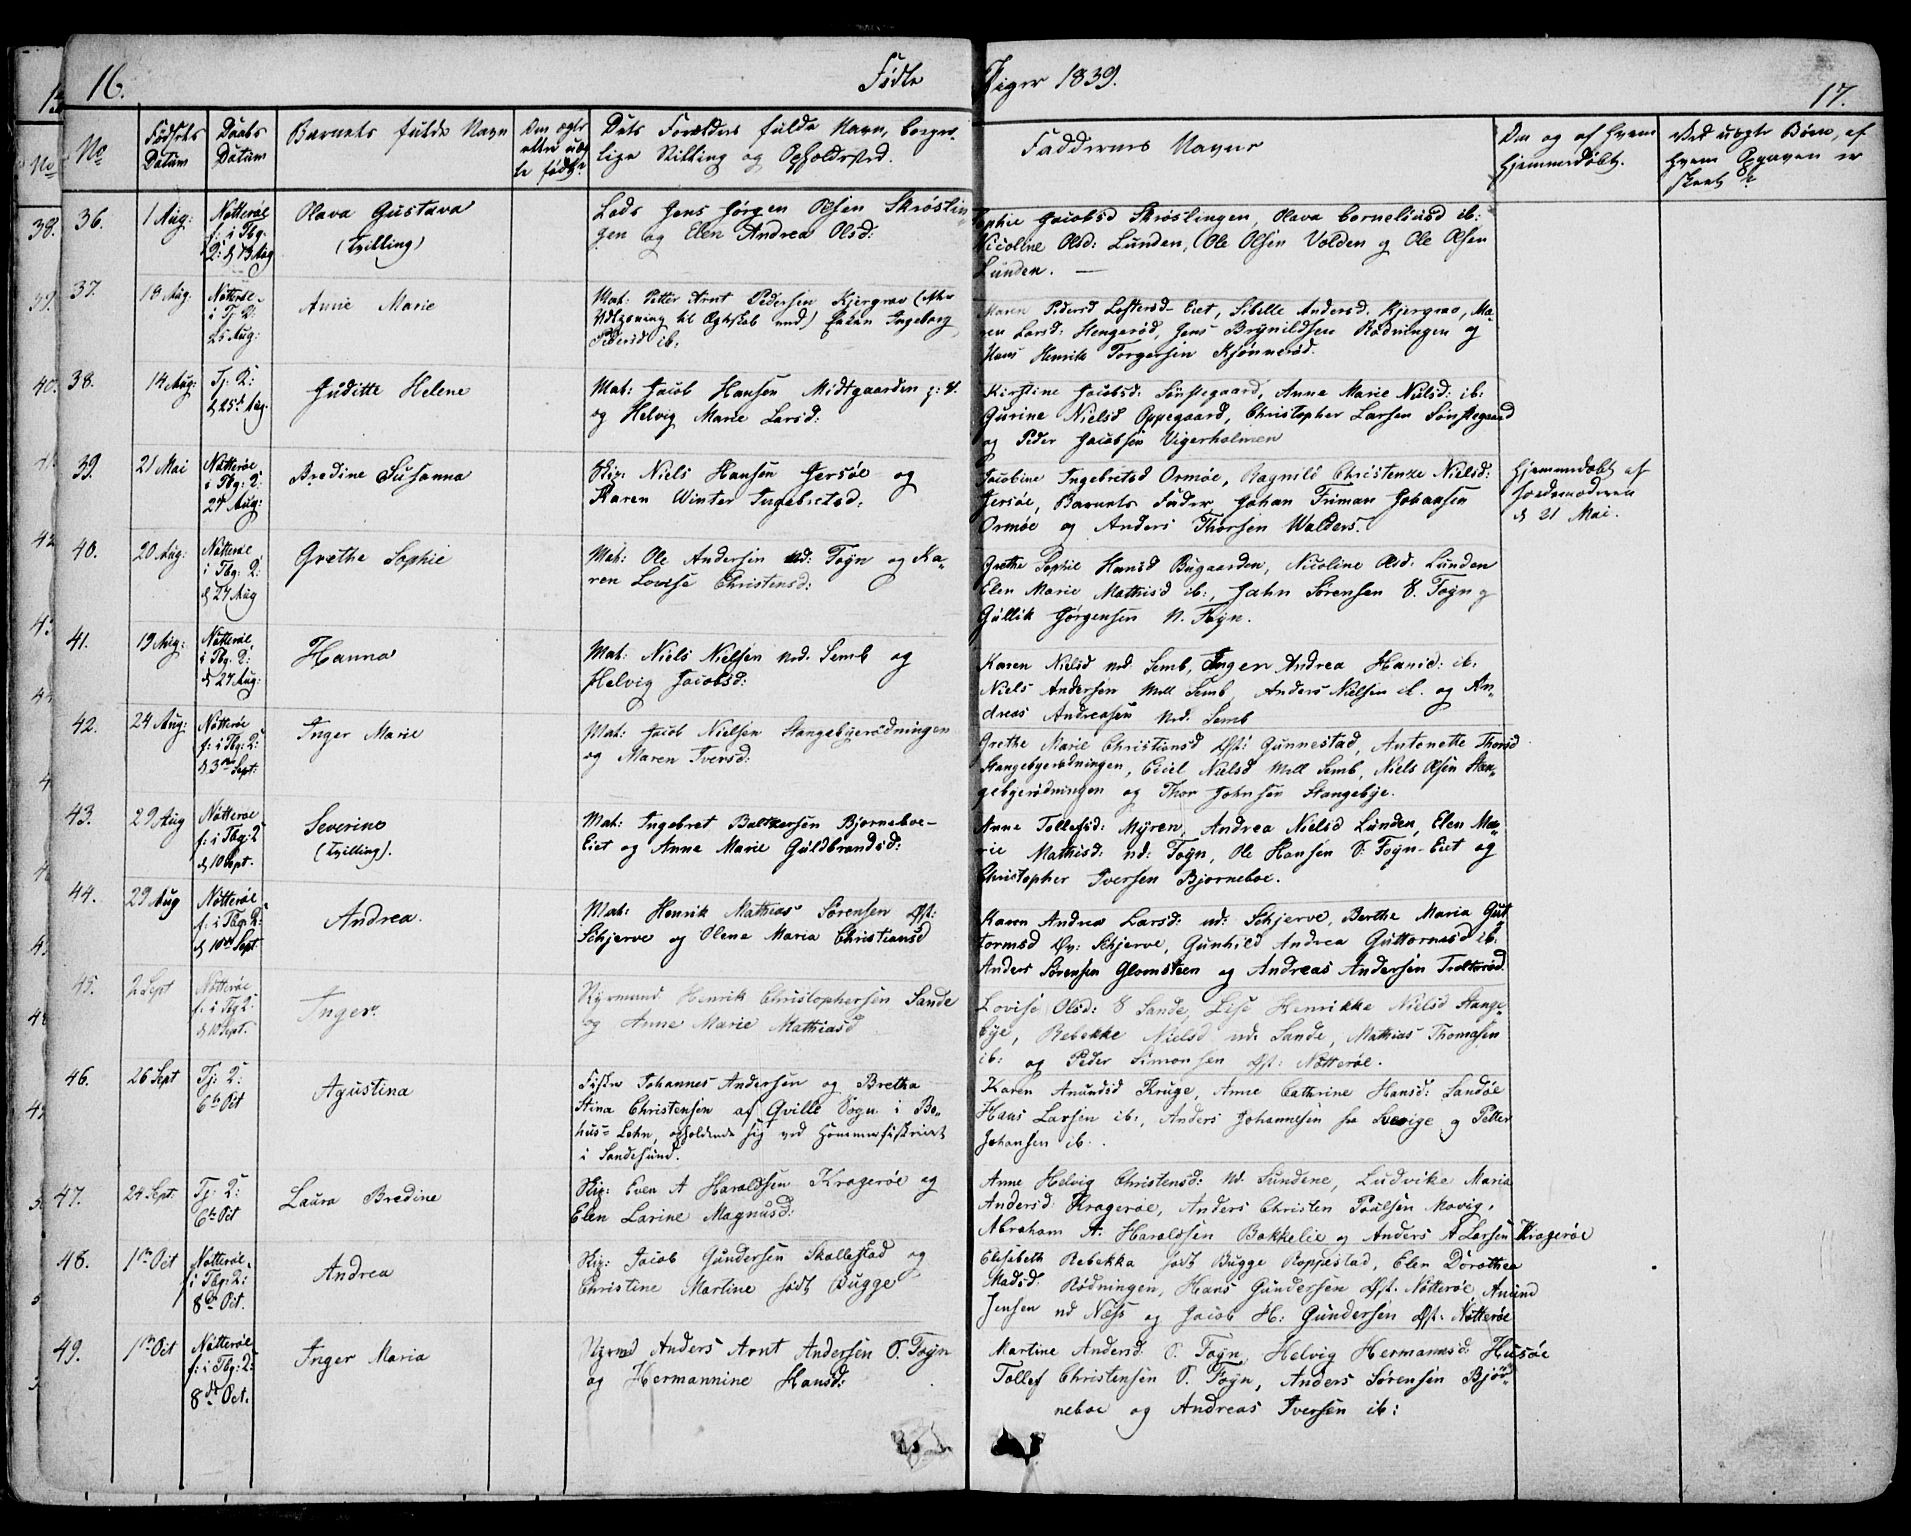 16.
Fødte
Piger 1839.
17.
No
Fødsels Datum
Daabs Datum
Barnets fulde Navn
Om ægte eller uægte født
Dets Forældres fulde Navn, borgerlige Stilling og Opholdssted.
Faddernes Navne
Om og af hvem hjemmedøbt.
Ved uægte Børn, af hvem Opgaven er skeet
36.
1 Aug:
Nøtterøe
f: i Tbg:
2: d 13 Aug
Olava Gustava
(tvilling)
Lods Jens Jørgen Olsen Skrøslin-
gen og Elen Andrea Olsd:
Sophie Jacobsd Skrøslingen, Olava Corneliusd ib:
Nicoline Olsd: Lunden, Ole Olsen Volden og Ole Olsen
Lunden. —
37.
18 Aug:
Nøtterøe
i Tj: 2:
25 Aug:
Anne Marie
Mat: Petter Arnt Pedersen Kjergrav
til Ægteskab med) Ingeborg
Pedersd ib:
Maren Pedersd Eiet, Sibille Andersd. Kjergrav, Ma-
ren Larsd: Hengerød, Jens Brynildsen Rødningen og
Hans Henrik Torgersen Kjønnerød.
38.
14 Aug:
Tj: 2:
d 25d Aug.
Juditte Helene
Mat: Jacob Hansen Midtgaarden
og Helvig Marie Larsd:
Kirstine Jacobsd: Sønstegaard, Anne Marie Nielsd: ib:
Gurine Nielsd Oppegaard, Christopher Larsen Sønstegaard
og Peder Jacobsen Vigerholmen
39.
21 Mai
Nøtterøe
i Tbg: 2:
27 Aug:
Bredine Susanna
Skip: Niels Hansen Jersøe og
Karen Winter Ingebretsd:
Jacobine Ingebretsd Ormøe, Ragnild Christenze Nielsd:
Jersøe, Barnets Fader, Johan Friman Johansen
Ormøe og Anders Thorsen Walders.
Hjemmedøbt af
Jordemoderen
d 21 Mai.
40.
20 Aug:
Nøtterøe
i Tbg: 2:
d 27 Aug
Grethe Sophie
Mat: Ole Andersen nd: Føyn og Ka-
ren Lovise Christensd:
Grethe Sophie Hansd Bugaarden, Nicoline Olsd: Lunden
Elen Marie Mathisd ib:, John Sørensen S. Føyn og
Gullik Jørgensen N. Føyn.
41.
19 Aug:
Nøtterøe
i Tbg: 2:
d 27 Aug:
Hanna
Mat: Niels Nielsen nd. Semb og
Helvig Jacobsd:
Karen Nielsd nd. Semb, Inger Andrea Hansd: ib:
Niels Andersen Mell Semb, Anders Nielsen ib. og An-
dreas Andreasen nd. Semb
42.
24 Aug:
Nøtterøe
f: i Tbg: 2:
d 3die Sept:
Inger Marie
Mat: Jacob Nielsen Stangebyerødningen
og Maren Iversd:
Grethe Marie Christiansd Øst: Gunnestad, Antonette Thorsd
Stangebyerødningen, Nielsd Mell Semb, Niels Olsen Stan-
gebyerødningen og Thor Johnsen Stangebye.
43.
29 Aug
Nøtterøe
f: i Tbg: 2
d 10 Sept.
Severine
(tvilling).
Mat: Ingebret Baltzersen Bjørneboe-
Eiet og Anne Marie Guldbrandsd:
Anne Tollefsd: Myren, Andrea Nielsd Lunden, Elen Ma-
rie Mathisd: nd: Føyn, Ole Hansen S: Føyn-Eiet og
Christopher Iversen Bjørneboe.
44.
29 Aug
Nøtterøe
f: i Tbg: 2:
d 10de Sept
Andrea.
Mat: Henrik Mathias Sørensen Øst:
Schjerve og Olena Maria Christiansd
Karen Andrea Larsd: nd: Schjerve, Berthe Maria Gut
tormsd Øv: Schjerve, Gunhild Andrea Guttormsd ib:
Anders Sørensen Glomsteen og Andreas Andersen Trolterød.
45.
2 Sept
Nøtterøe
f: i Tbg 2:
d 10 Sept.
Inger
Styrmand Henrik Christophersen Sande
og Anne Marie Mathiasd
Lovise Olsd: S Sande, Lise Henrikke Nielsd Stange-
bye, Rebekke Nielsd nd. Sande, Mathias Thomasen
ib: og Peder Simonsen Øst: Nøtterøe.
46.
26 Sept
Tj: 2:
6te Oct
Agustina
Johannes Andersen og Bretha
Stina Christensen af Qville Sogn i Bo-
hus-Lehn, opholdende sig ved
i Sandesund.
Karen Anundsd Kruge, Anne Cathrine Hansd: Sandøe
Hans Larsen ib:, Anders Johannesen fra Sverige og Petter
Johansen ib:.
47.
24 Sept.
Tj: 2:
6te Oct
Laura Bredine
Skip: Even A Haraldsen Kragerøe og
Elen Larine Magnusd:
Anne Helvig Christensd: nd. Sundene, Ludvike Maria
Andersd: Kragerøe, Anders Christen Poulsen Movig,
Abraham A. Haraldsen Bakkelie og Anders A Larsen Kragerøe
48.
1ste Oct
Nøtterøe
i Tbg: 2:
8de Oct.
Andrea
Skip: Jacob Gundersen Skallestad og
Christine Martine født Bugge
Elisabeth Rebekka født Bugge Roppestad, Elen Dorothea
Madsd: Rødningen, Hans Gundersen Øst. Nøtterøe, Anund
Jensen nd Næss og Jacob H: Gundersen Øst. Nøtterøe
49.
1ste Oct
Nøtterøe
f: i Tbg: 2:
8de Oct.
Inger Maria
Styrmd Anders Arnt Andersen S. Føyn
og Hermannine Hansd:
Martine Andersd: S. Føyn, Helvig Hermannsd: Husøe
Tollef Christensen S. Føyn, Anders Sørensen Bjør-
neboe og Andreas Iversen ib: